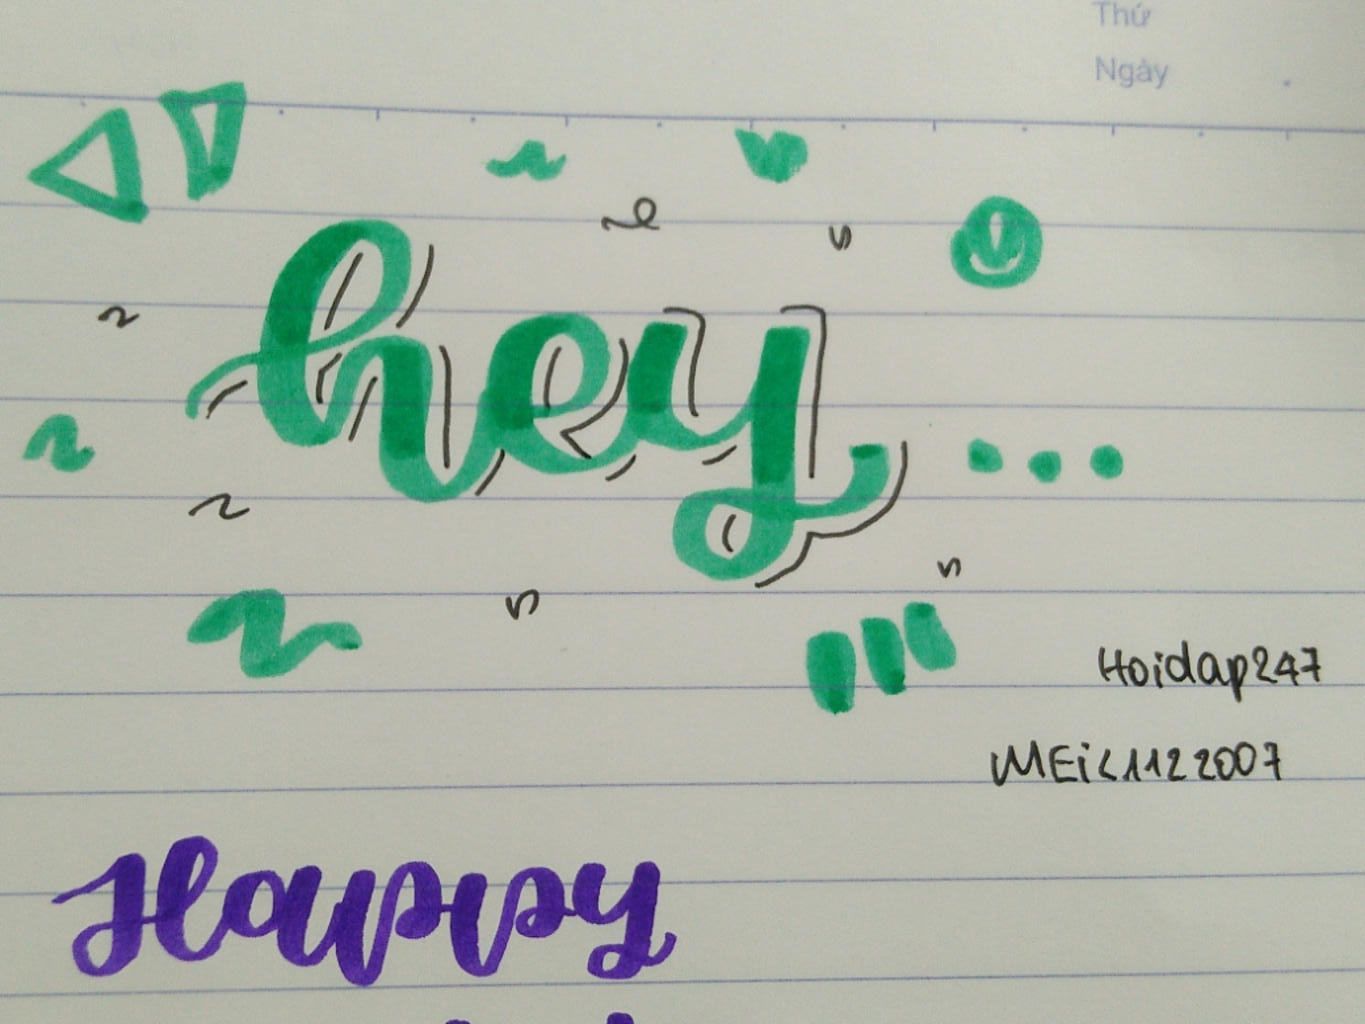 Thứ
Ngày
hey...
Hoidap247
MEi<1122007
Happy